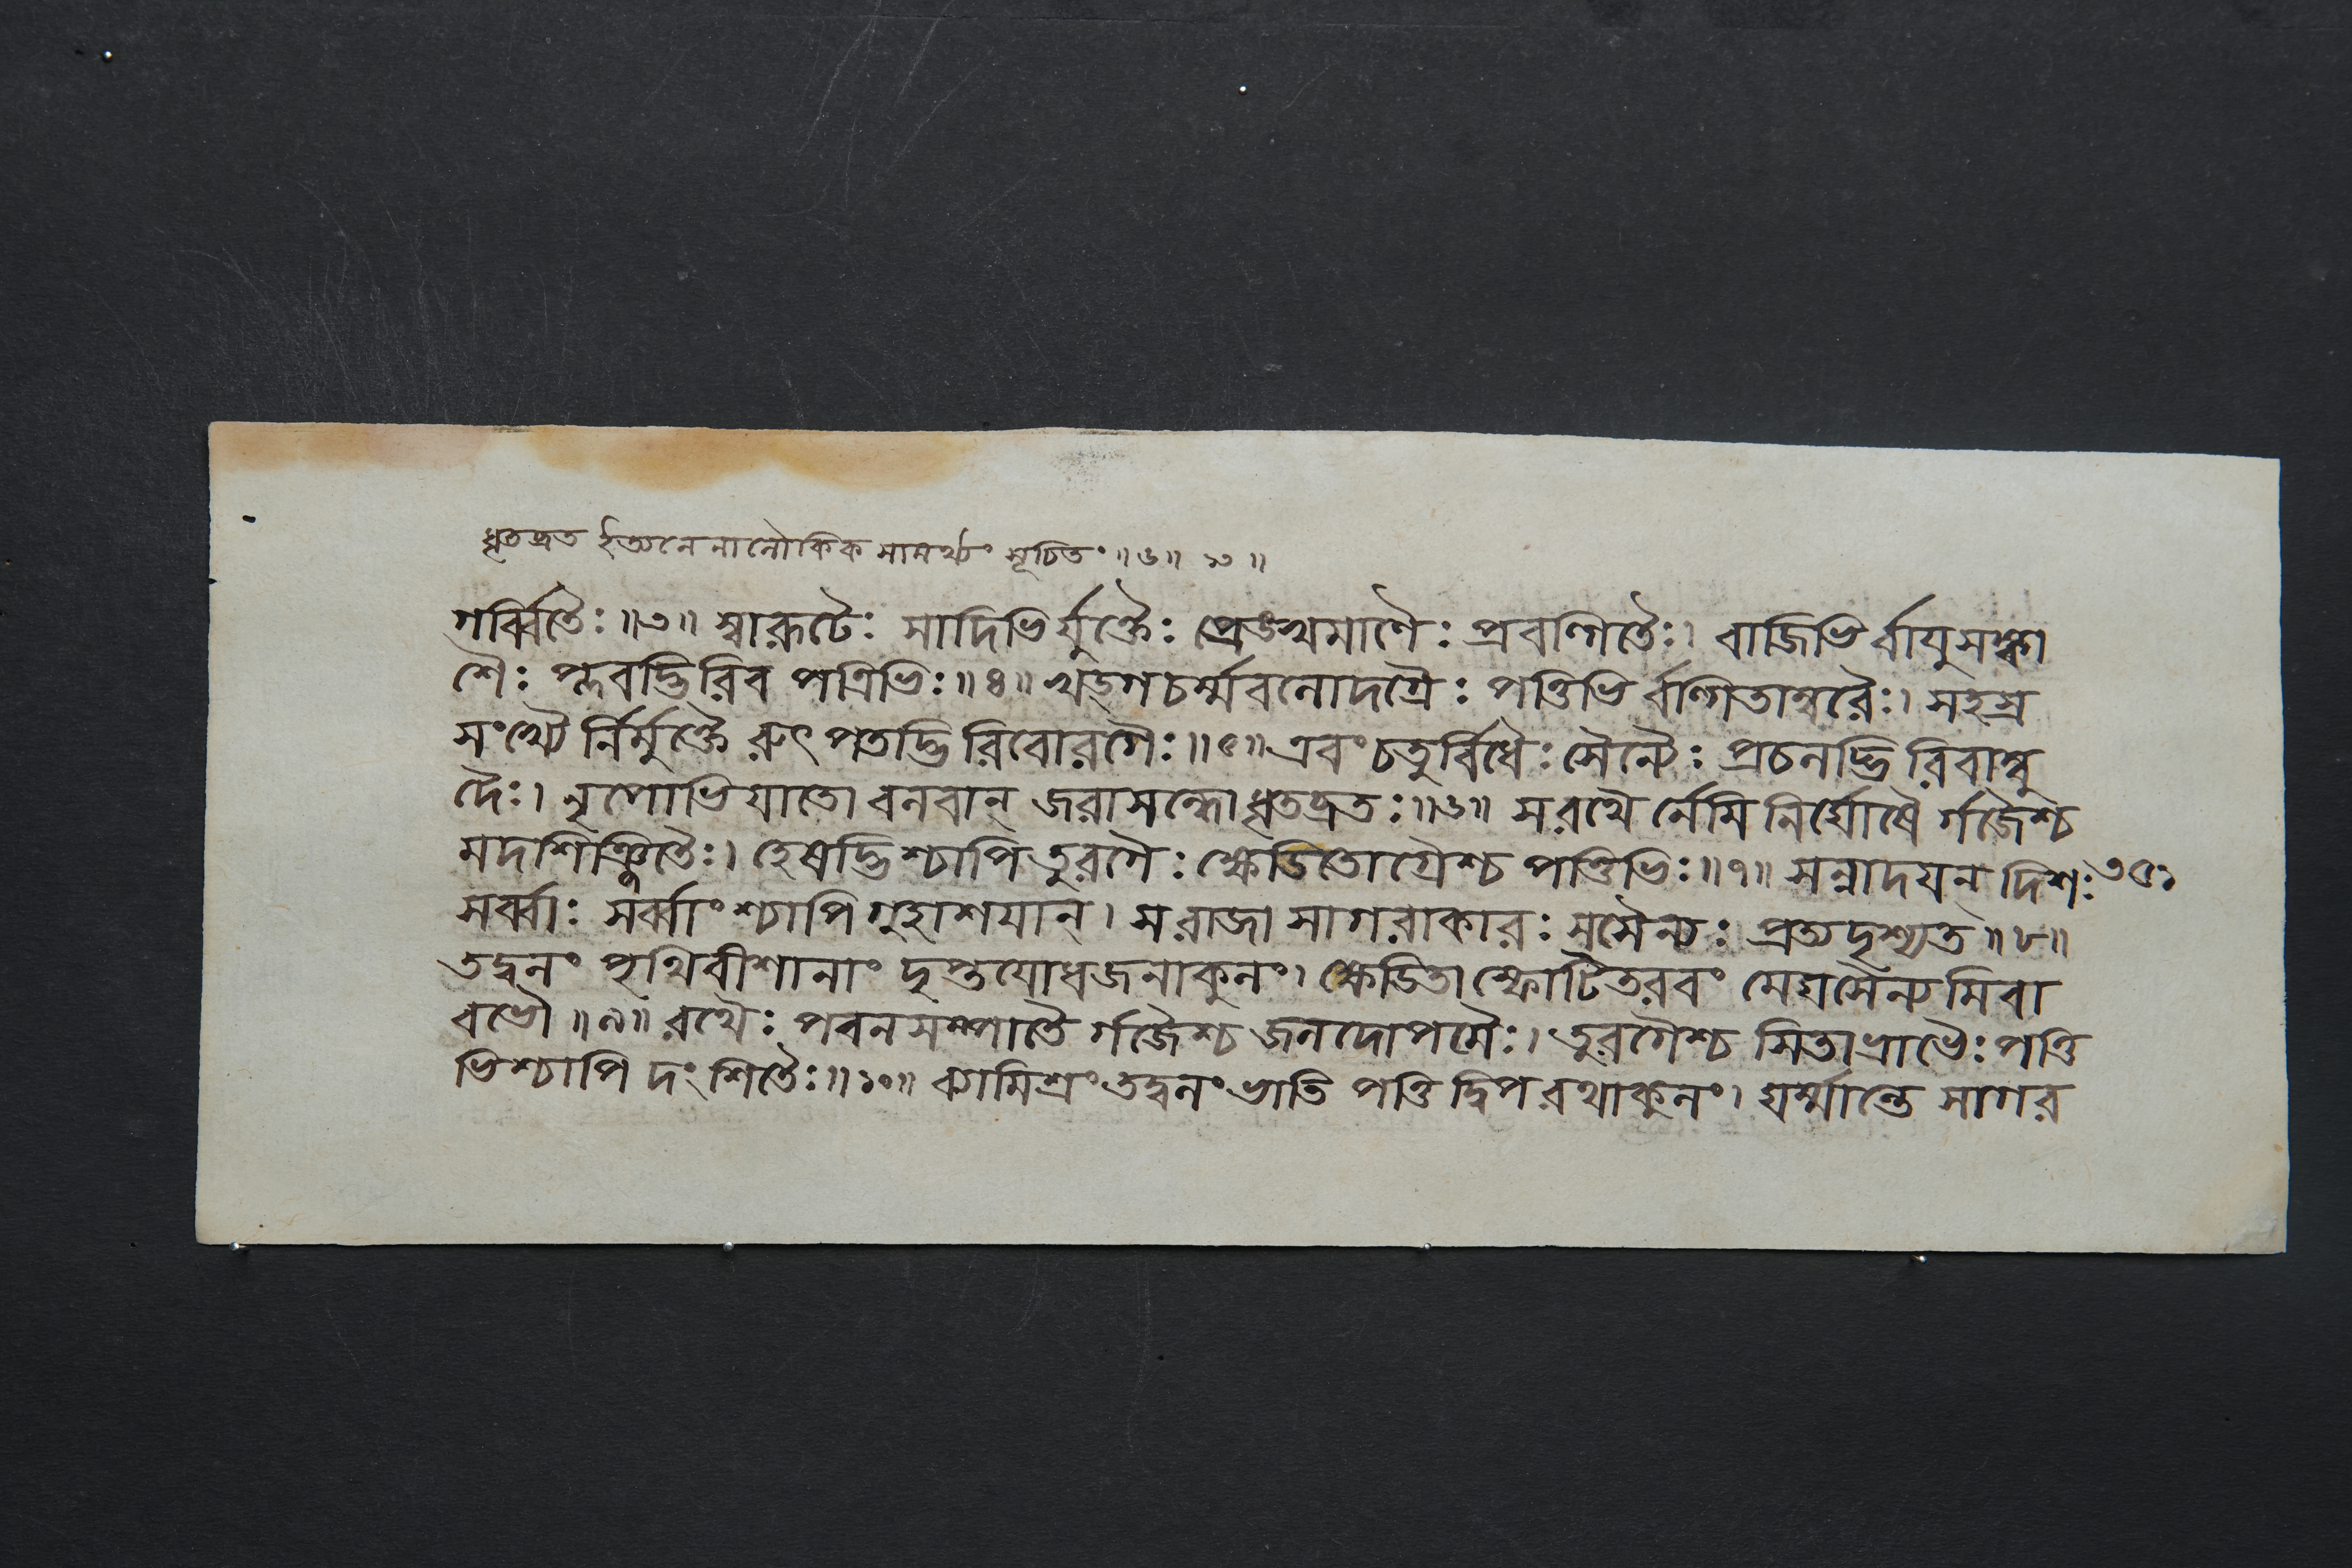 ধৃতব্রত ইত্যনেনালৌকিকসামর্থ্যং সূচিতং ॥৬॥ ১০ ॥
গর্ব্বিতৈঃ ॥৩॥ স্বারূঢৈঃ সাদিভির্যুক্তৈঃ প্রেঙখমাণৈঃ প্রবল্গিতৈঃ। বাজিভির্বায়ুসঙ্কা
শৈঃ প্লবদ্ভিরিব পত্রিভিঃ ॥৪॥ খড্গচর্ম্মবলোদগ্রৈঃ পত্তিভির্বল্গিতাম্বরৈঃ। সহস্র
সংখ্যৈর্নির্মুক্তৈরুৎপতদ্ভিরিবোরগৈঃ ॥৫॥ এবং চতুর্বিধৈঃ সৈন্যৈঃ প্রচলদ্ভিরিবাম্বু
দৈঃ। নৃপোভিযাতো বলবান্ জরাসন্ধো ধৃতব্রতঃ ॥৬॥ স রথৈর্নেমিনির্ঘোষৈর্গজৈশ্চ
মদশিঞ্জিতৈঃ। হেষদ্ভিশ্চাপি তুরগৈঃ ক্ষ্বেডিতোগ্রৈশ্চ পত্তিভিঃ ॥৭॥ সন্নাদয়ন্ দিশঃ ৩৫১
সর্ব্বাঃ সর্ব্বাংশ্চাপি গুহাশয়ান্। স রাজা সাগরাকারঃ সসৈন্যঃ প্রত্যদৃশ্যত ॥৮॥
তদ্বলং পৃথিবীশানাং দৃপ্তযোধজনাকুলং। ক্ষ্বেডিতাস্ফোটিতরবং মেঘসৈন্যমিবা
বভৌ ॥৯॥ রথৈঃ পবনসম্পাতৈর্গজৈশ্চ জলদোপমৈঃ। তুরগৈশ্চ সিতাভ্রাভৈঃ পত্তি
ভিশ্চাপি দংশিতৈঃ ॥১০॥ ব্যামিশ্রং তদ্বলং ভাতি পত্তিদ্বিপরথাকুলং। ঘর্ম্মান্তে সাগর